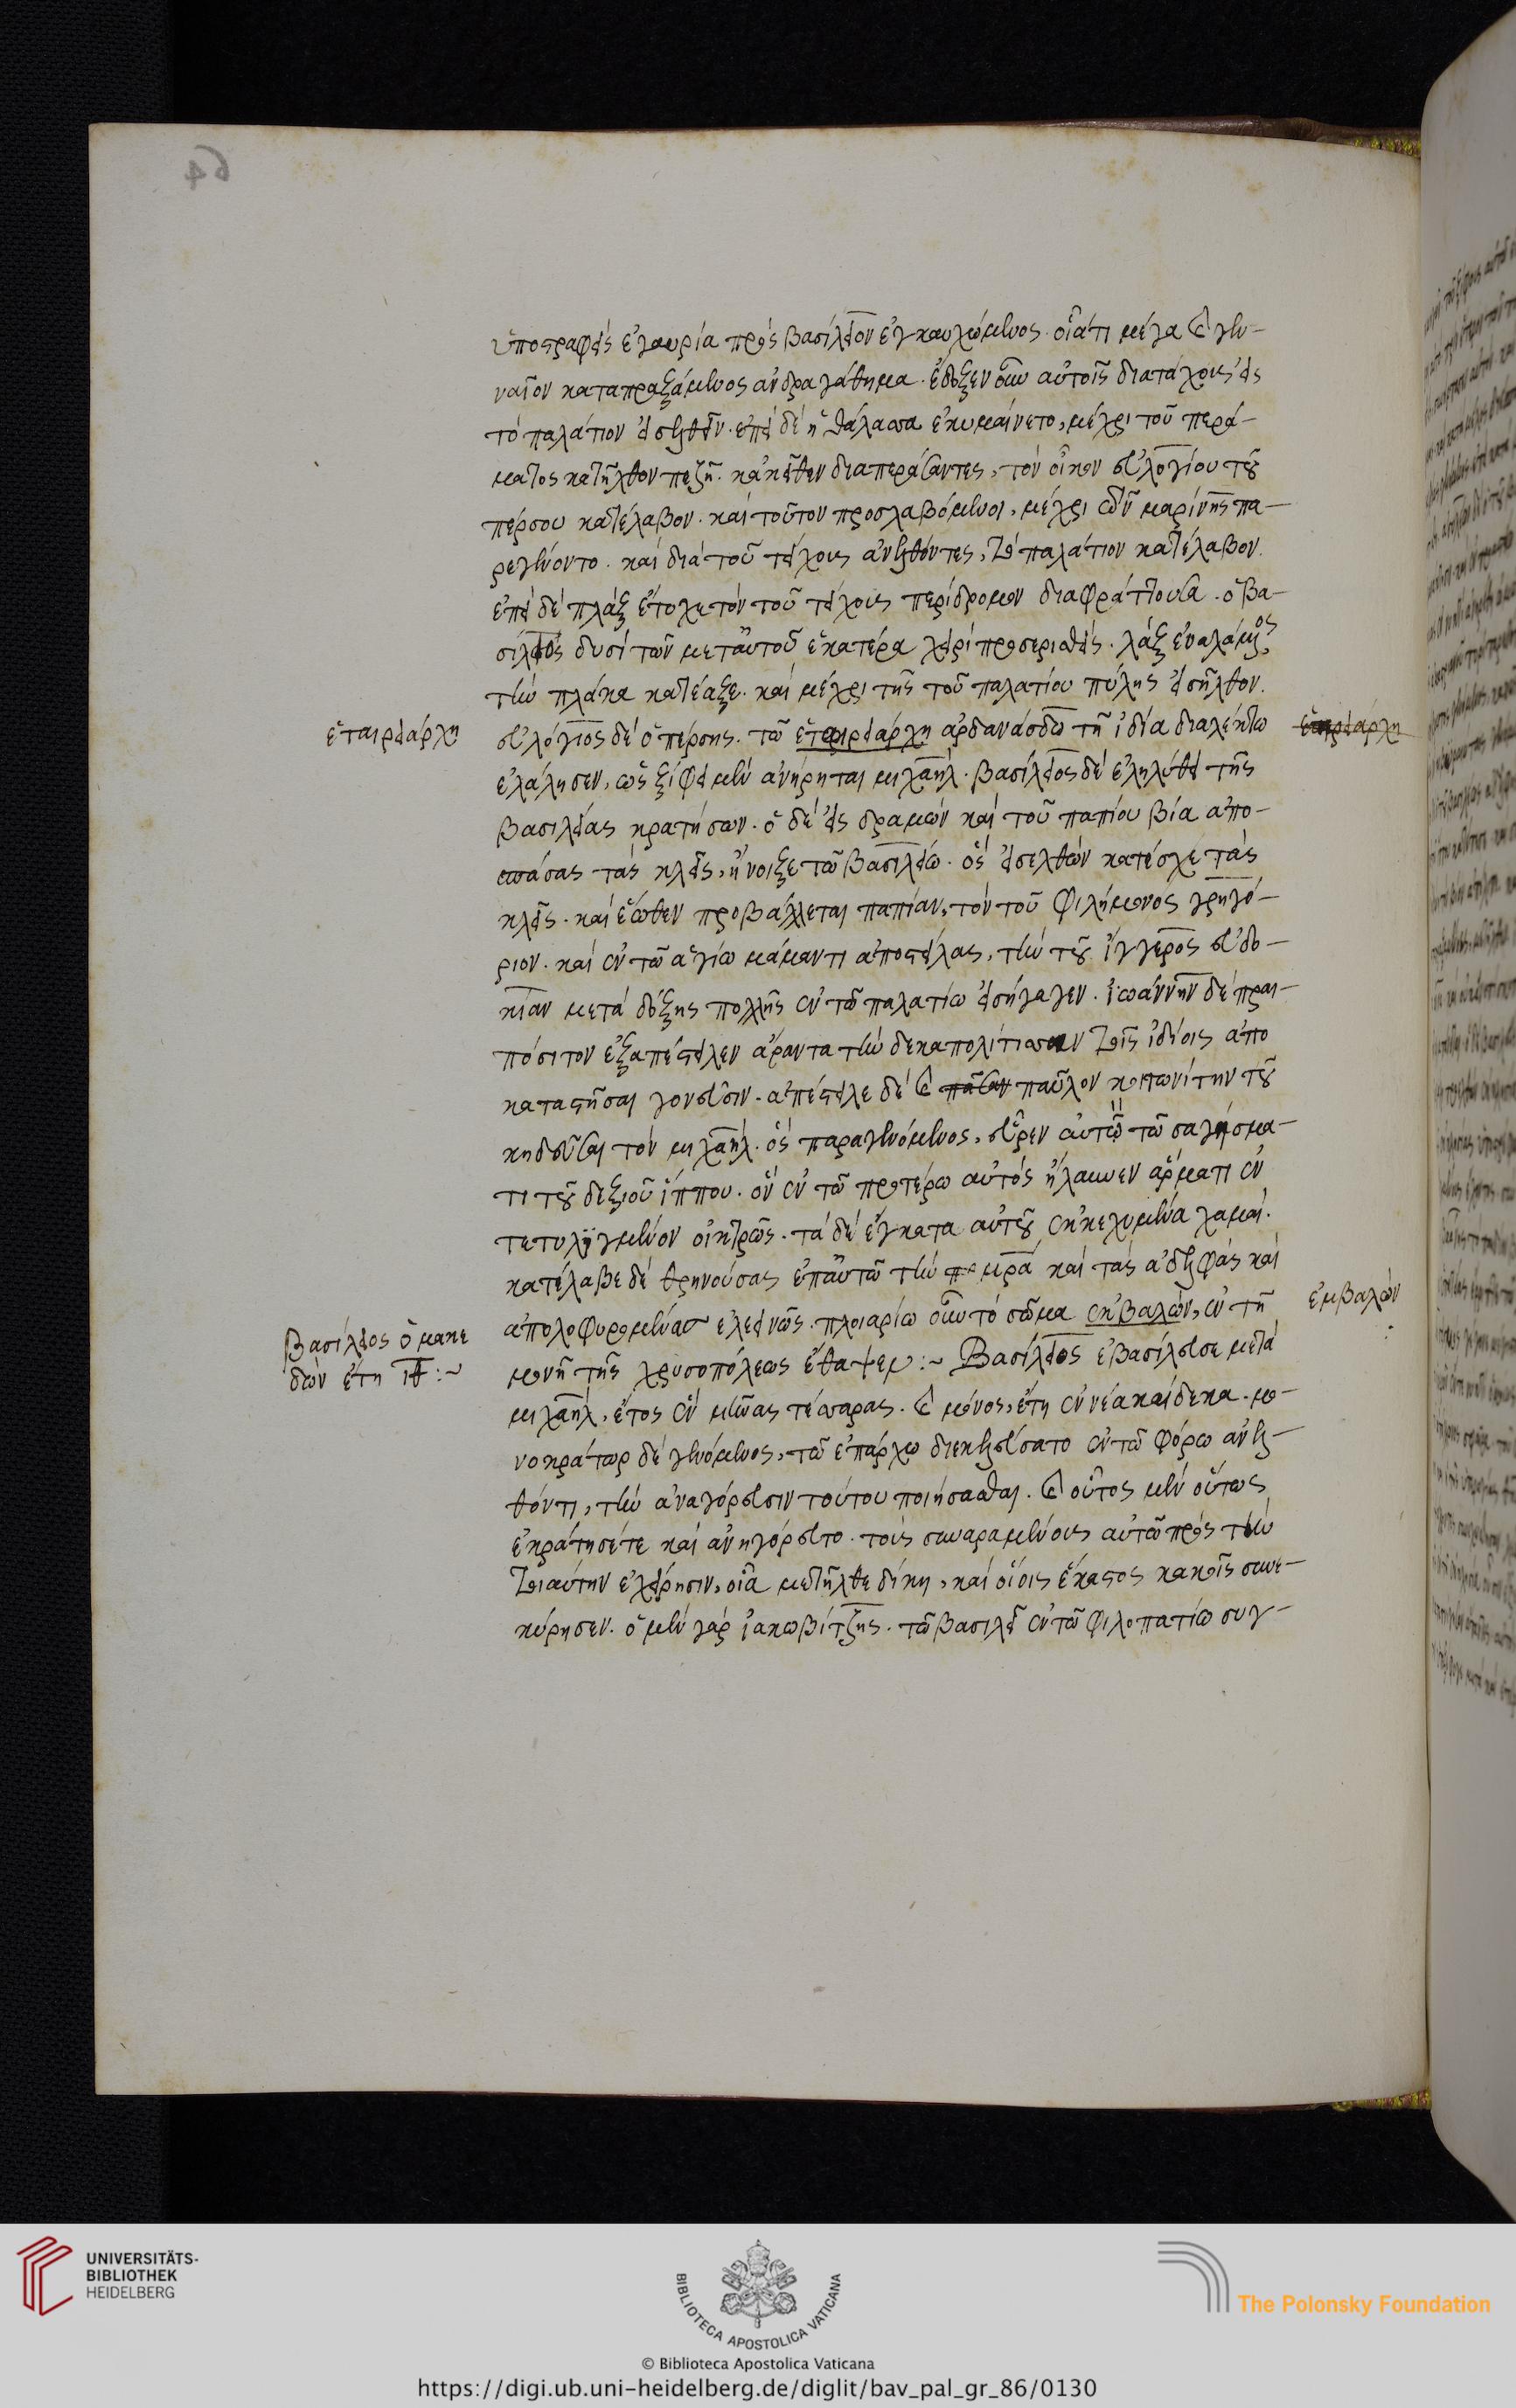 64
ὑποστραφεὶς ἐγαυρία πρὸς βασίλειον ἐγκαυχώμενος. οἷά τι μέγα καὶ γεν-
ναῖον καταπραξάμενος ἀνδραγάθημα. ἔδοξεν οὖν αὐτοῖς διατάχους εἰς
τὸ παλάτιον εἰσελθεῖν. ἐπεὶ δὲ ἡ θάλασσα ἐκυμαίνετο, μέχρι τοῦ περά-
ματος κατῆλθον πεζῇ. κἀκεῖθεν διαπεράσαντες, τὸν οἶκον εὐλογίου τοῦ
πέρσου κατέλαβον. καὶ τοῦτον προσλαβόμενοι, μέχρι τῶν μαρίνης πα-
ρεγένοντο. καὶ διὰ τοῦ τείχους ἀνελθόντες, τὸ παλάτιον κατέλαβον.
ἐπεὶ δὲ πλὰξ ἐτύγχανε τὸν τοῦ τείχους περίδρομον διαφράττουσα. ὁ βα-
σίλειος δυσὶ τῶν μεταυτοῦ ἑκατέρα χειρὶ προσερεισθεὶς. λὰξ ἐναλάμενος
τὴν πλάκα κατέαξε. καὶ μέχρι τῆς τοῦ παλατίου πύλης εἰσῆλθον.
ἑταιρειάρχη
εὐλόγιος δὲ ὁ πέρσης. τῶ ἑταιρειάρχη ἀρδανάσδω τῆ ἰδία διαλέκτω
ἑταιρειάρχη
ἐλάλησεν, ὡς ξίφει μὲν ἀνήρηται μιχαὴλ. βασίλειος δὲ ἐληλύθει τῆς
βασιλείας κρατήσων. ὁ δὲ εἰσδραμὼν καὶ τοῦ παπίου βία ἀπο-
σπάσας τὰς κλεῖς, ἤνοιξε τῶ βασιλείω. ὃς εἰσελθὼν κατέσχε τὰς
κλεῖς. καὶ ἕωθεν προβάλλεται παπίαν, τὸν τοῦ φιλήμονος γρηγό-
ριον. καὶ ἐν τῶ ἁγίω μάμαντι ἀποστείλας, τὴν τοῦ ἴγγερος εὐδο-
κίαν μετὰ δόξης πολλῆς ἐν τῶ παλατίω εἰσήγαγεν. ἰωάννην δὲ πραι-
πόσιτον ἐξαπέστειλεν ἄραντα τὴν δεκαπολίτισσαν τοῖς ἰδίοις ἀπο
καταστῆσαι γονεῦσιν. ἀπέστειλε δὲ καὶ παῦλον κοιτωνίτην τοῦ
κηδεῦσαι τὸν μιχαὴλ. ὃς παραγενόμενος, εὗρεν αὐτὸν τῶ σαγίσμα-
τι τοῦ δεξιοῦ ἵππου. ὃν ἐν τῶ προτέρω αὐτὸς ἤλαυνεν ἅρματι ἐν
τετυλιγμένον οἰκτρῶς. τὰ δὲ ἔγκατα αὐτοῦ ἐκκεχυμένα χαμαί.
κατέλαβε δὲ θρηνούσας ἐπαυτῶ τὴν μητέρα καὶ τὰς ἀδελφὰς καὶ
ἀπολοφυρομένας ἐλεεινῶς. πλοιαρίω οὖν τὸ σῶμα ἐκβαλὼν, ἐν τῆ
ἐμβαλὼν
Βασίλειος ὁ μακε
δὼν ἔτη ιθ :~
μονῆ τῆς χρυσοπόλεως ἔθαψεν :~ Βασίλειος ἐβασίλευσε μετὰ
μιχαὴλ, ἔτος ἓν μῆνας τέσσαρας. καὶ μόνος, ἔτη ἐννέα καίδεκα. μο-
νοκράτωρ δὲ γενόμενος, τῶ ἐπάρχω διεκελεύσατο ἐν τῶ φόρω ἀνελ-
θόντι, τὴν ἀναγόρευσιν τούτου ποιήσασθαι. καὶ οὗτος μὲν οὕτως
ἐκράτησέτε καὶ ἀνηγόρευτο. τοὺς συναραμένους αὐτῶ πρὸς τὴν
τοιαύτην ἐγχείρησιν, οἵα μετῆλθε δίκη, καὶ οἵοις ἕκαστος κακοῖς συνε-
κύρησεν. ὁ μὲν γὰρ ἰακωβίτζης. τῶ βασιλεῖ ἐν τῶ φιλοπατίω συγ-
UNIVERSITÄTS-
BIBLIOTHEK
HEIDELBERG
BIBLIOTECA APOSTOLICA VATICANA
The Polonsky Foundation
© Biblioteca Apostolica Vaticana
https://digi.ub.uni-heidelberg.de/diglit/bav_pal_gr_86/0130